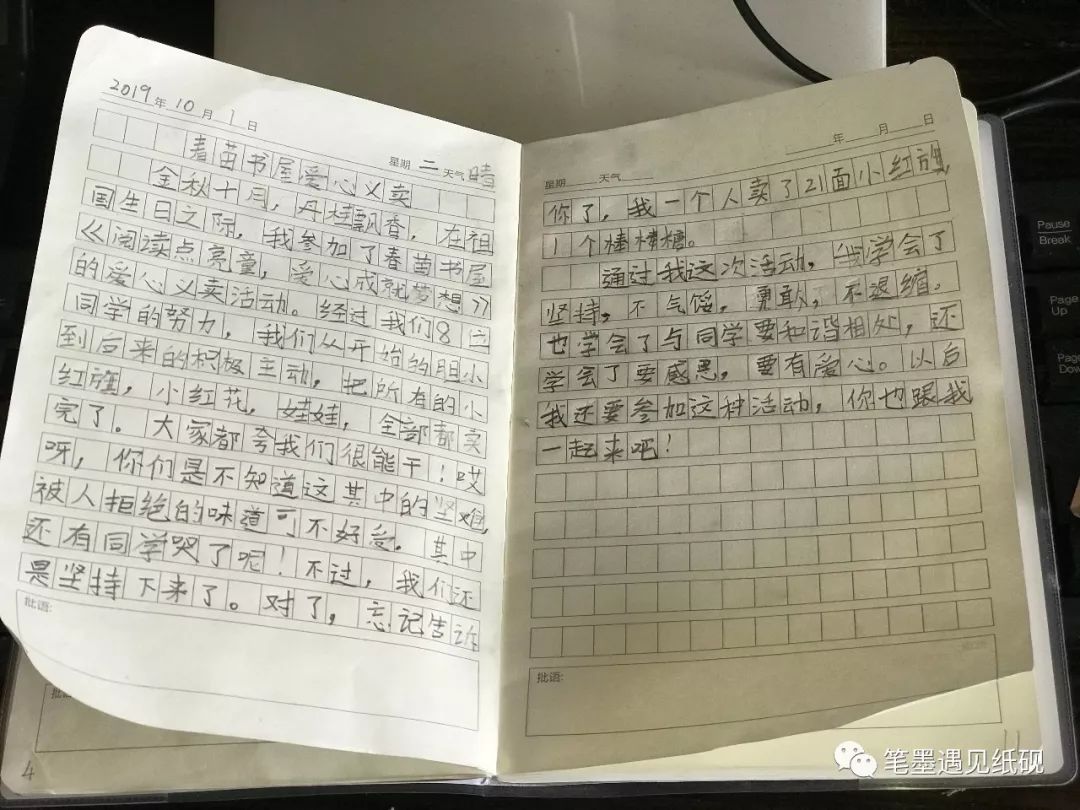 2019年 10月 1日
星期 二 天气 晴
春苗书屋爱心义卖
金秋十月，丹桂飘香，在祖
国生日之际，我参加了春苗书屋
《阅读点亮童，爱心成就梦想》
的爱心义卖活动。经过我们8位
同学的努力，我们从开始的胆小
到后来的积极主动，把所有的小
红旗，小红花，娃娃，全部都卖
完了。大家都夸我们很能干！哎
呀，你们是不知道这其中的坚难，
被人拒绝的味道可不好受。其中
还有同学哭了呢！不过，我们还
是坚持下来了。对了，忘记告诉
批语:
批语:
4
年 月 日
星期 天气
你了，我一个人卖了21面小红旗，
1个棒棒糖。
通过我这次活动，我学会了
坚持，不气馁，勇敢，不退缩。
也学会了与同学要和谐相处，还
学会了要感恩，要有爱心。以后
我还要参加这种活动，你也跟我
一起来吧！
批语:
11
Pause
Break
Page
Up
Page
笔墨遇见纸砚